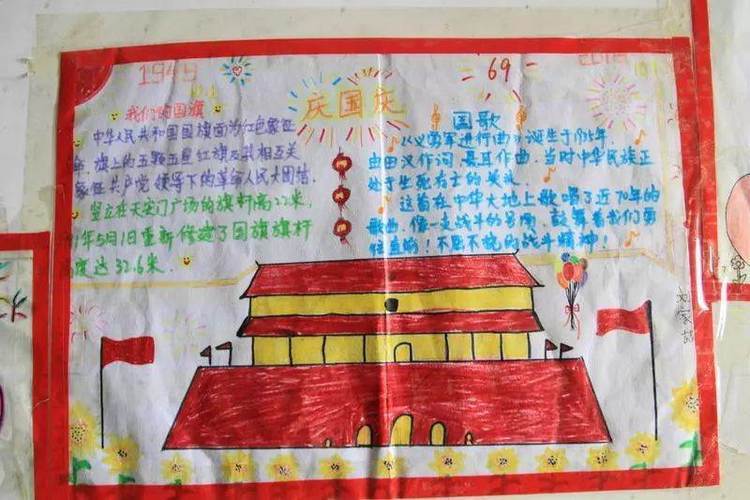 1949
69
庆国庆
我们的国旗
中华人民共和国国旗面为红色象征
旗上的五颗五星红旗及其相互关
象征共产党领导下的革命人民大团结.
竖立在天安门广场的旗杆高22米.
1年5月1日重新修建了国旗旗杆
度达32.6米.
国歌
《义勇军进行曲》诞生于
由田汉作词.聂耳作曲.当时中华民族正
处于生死存亡的关头.
这首在中华大地上歌唱了近70年的
歌曲.像一支战斗的号角.鼓舞着我们勇
往直前!不屈不挠的战斗精神!